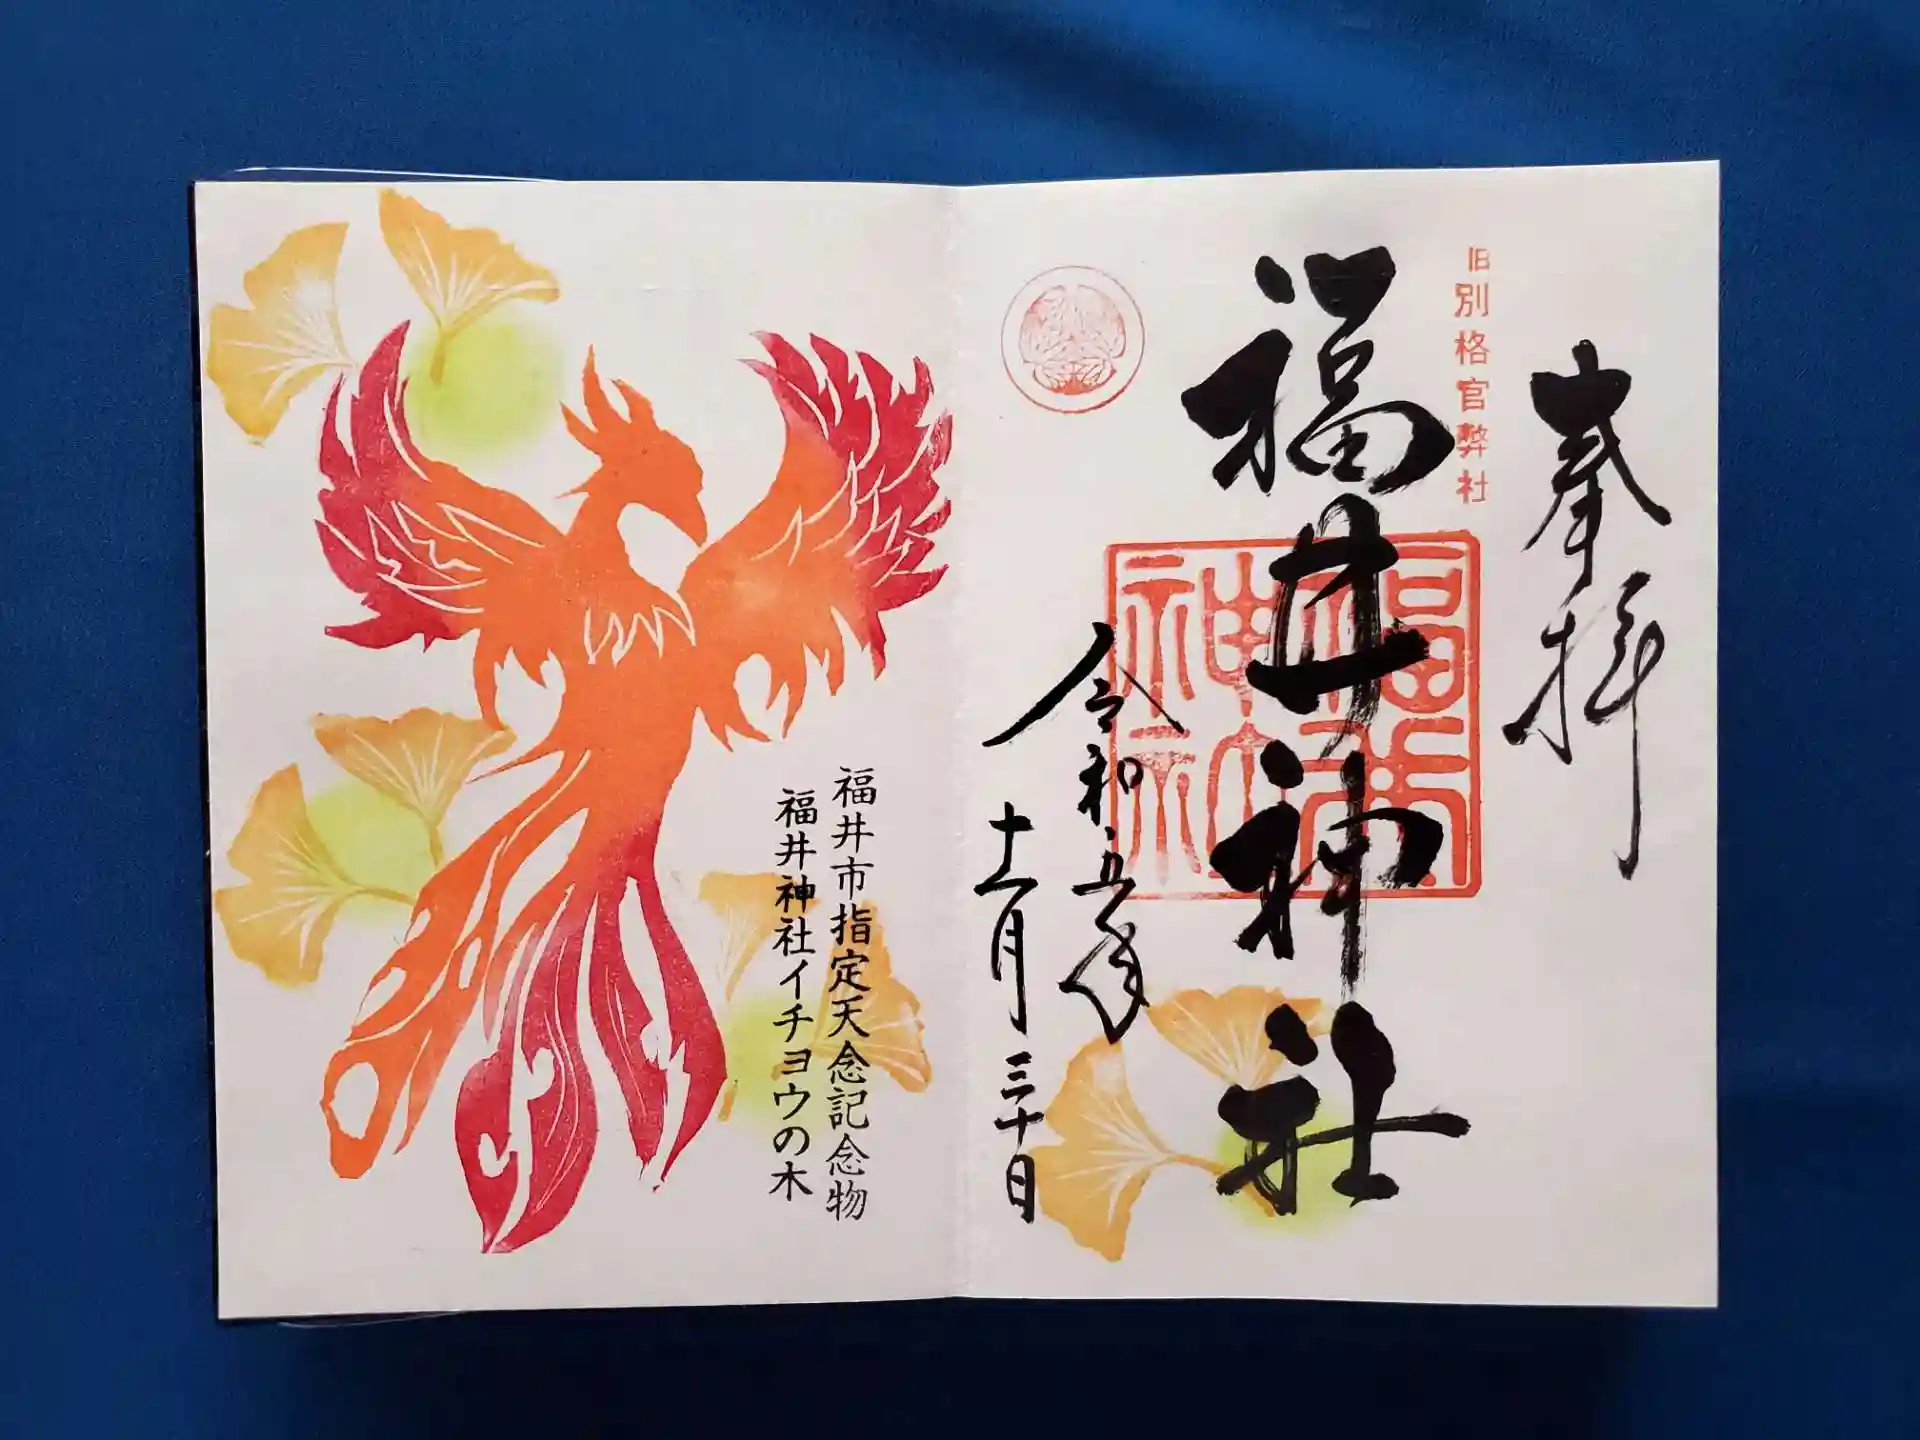 奉拝
旧別格官弊社
福井神社
福井神社
令和五年
十一月三十日
福井市指定天念記念物
福井神社イチヨウの木